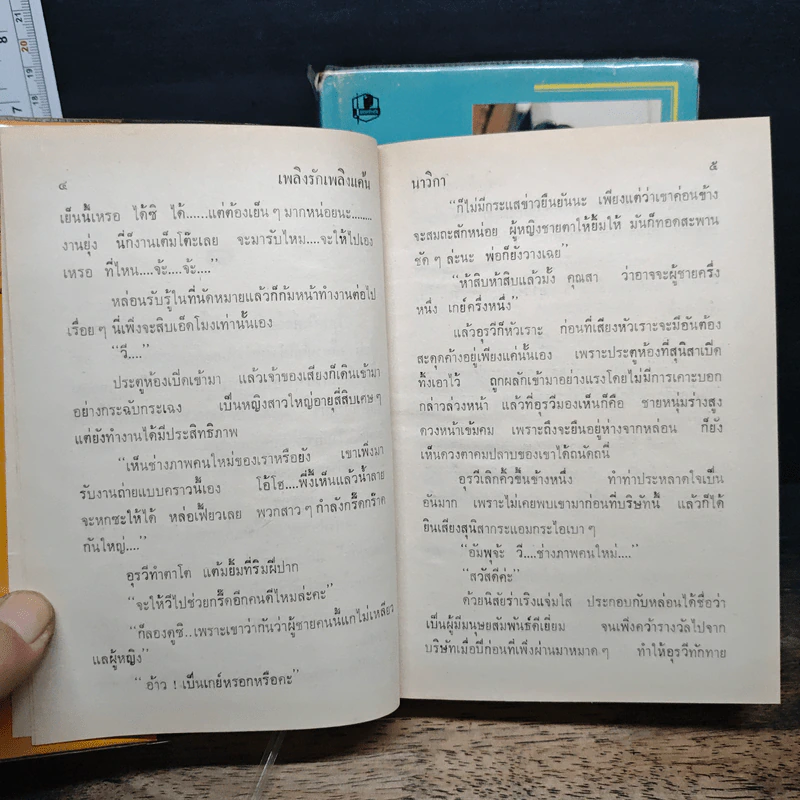 ๔ เพลิงรักเพลิงแค้น
เย็นนี้เหรอ ได้ซิ ได้......แต่ต้องเย็น ๆ มากหน่อยนะ........
งานยุ่ง นี่ก็งานเต็มโต๊ะเลย จะมารับไหม....จะให้ไปเอง
เหรอ ที่ไหน....จ้ะ....จ้ะ....”
หล่อนรับรู้ในที่นัดหมายแล้วก็ก้มหน้าทำงานต่อไป
เรื่อย ๆ นี่เพิ่งจะสิบเอ็ดโมงเท่านั้นเอง
“วี....”
ประตูห้องเปิดเข้ามา แล้วเจ้าของเสียงก็เดินเข้ามา
อย่างกระฉับกระเฉง เป็นหญิงสาวใหญ่อายุสี่สิบเศษ ๆ
แต่ยังทำงานได้มีประสิทธิภาพ
“เห็นช่างภาพคนใหม่ของเราหรือยัง เขาเพิ่งมา
รับงานถ่ายแบบคราวนี้เอง โอ้โฮ....พี่งี้เห็นแล้วน้ำลาย
จะหกซะให้ได้ หล่อเฟี้ยวเลย พวกสาว ๆ กำลังกรี๊ดกร๊าด
กันใหญ่....”
อุรวีทำตาโต แต้มยิ้มที่ริมฝีปาก
“จะให้วีไปช่วยกรี๊ดอีกคนดีไหมล่ะคะ”
“ก็ลองดูซิ..เพราะเขาว่ากันว่าผู้ชายคนนี้แกไม่เหลียว
แลผู้หญิง”
“อ้าว ! เป็นเกย์หรอกหรือคะ”
นาวิกา ๕
“ก็ไม่มีกระแสข่าวยืนยันนะ เพียงแต่ว่าเขาค่อนข้าง
จะสมถะสักหน่อย ผู้หญิงชายตาให้ยิ้มให้ มันก็ทอดสะพาน
ชัด ๆ ล่ะนะ พ่อก็ยังวางเฉย”
“ห้าสิบห้าสิบแล้วมั้ง คุณสา ว่าอาจจะผู้ชายครึ่ง
หนึ่ง เกย์ครึ่งหนึ่ง”
แล้วอุรวีก็หัวเราะ ก่อนที่เสียงหัวเราะจะมีอันต้อง
สะดุดค้างอยู่เพียงแค่นั้นเอง เพราะประตูห้องที่สุนิสาเปิด
ทิ้งเอาไว้ ถูกผลักเข้ามาอย่างแรงโดยไม่มีการเคาะบอก
กล่าวล่วงหน้า แล้วที่อุรวีมองเห็นก็คือ ชายหนุ่มร่างสูง
ดวงหน้าเข้มคม เพราะถึงจะยืนอยู่ห่างจากหล่อน ก็ยัง
เห็นดวงตาคมปลาบของเขาได้ถนัดถนี่
อุรวีเลิกคิ้วขึ้นข้างหนึ่ง ทำท่าประหลาดใจเป็น
อันมาก เพราะไม่เคยพบเขามาก่อนที่บริษัทนี้ แล้วก็ได้
ยินเสียงสุนิสากระแอมกระไอเบา ๆ
“อัมพุจ้ะ วี....ช่างภาพคนใหม่....”
“สวัสดีค่ะ”
ด้วยนิสัยร่าเริงแจ่มใส ประกอบกับหล่อนได้ชื่อว่า
เป็นผู้มีมนุษยสัมพันธ์ดีเยี่ยม จนเพิ่งคว้ารางวัลไปจาก
บริษัทเมื่อปีก่อนที่เพิ่งผ่านมาหมาด ๆ ทำให้อุรวีทักทาย